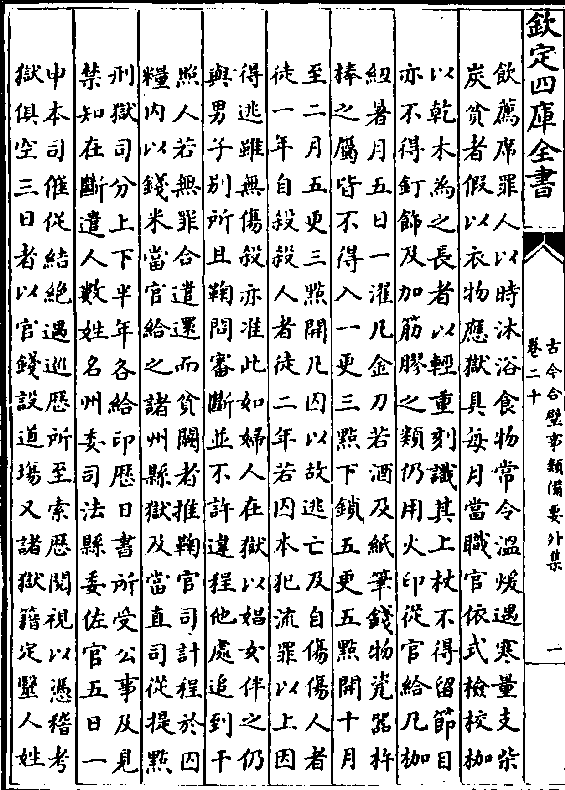 欽定四庫全書
古今合璧事類備要外集
卷二十
一
飲薦席罪人以時沐浴食物常令溫煖遇寒量支柴
炭貧者假以衣物應獄具每月當職官依式檢校枷
以乾木為之長者以輕重刻識其上杖不得留節目
亦不得釘飾及加筋膠之類仍用火印從官給凡枷
紐暑月五日一濯凡金刀若酒及紙筆錢物瓷器杵
棒之屬皆不得入一更三點下鎖五更五點開十月
至二月五更三點開凡囚以故逃亡及自傷傷人者
徒一年自殺殺人者徒二年若囚本犯流罪以上因
得逃雖無傷殺亦准此如婦人在獄以娼女伴之仍
與男子別所且鞫問審斷並不許違程他處追到干
照人若無罪合遣還而貧闕者推鞫官司計程於囚
糧內以錢米當官給之諸州縣獄及當直司從提點
刑獄司分上下半年各給印歷日書所受公事及見
禁知在斷遣人數姓名州委司法縣委佐官五日一
申本司催促結絕遇巡歷所至索歷閱視以憑稽考
獄俱空三日者以官錢設道場又諸獄籍定毉人姓